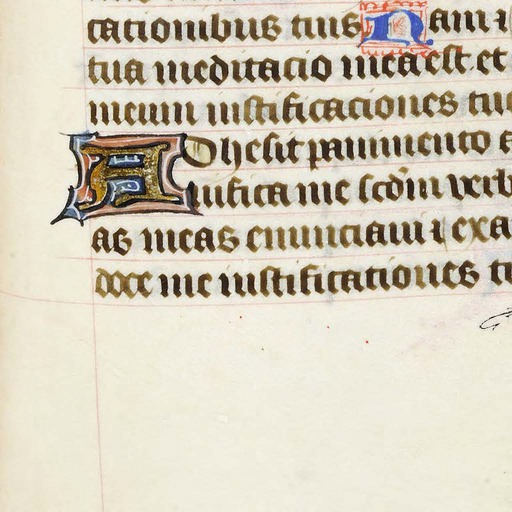 cationibus tuis Nam ⁊
tua meditacio mea est et
meum iustificaciones tu
ADhesit pauimento a
uiuifica me scdm verb
as meas enunciaui ⁊ exa
doce me iustificationes tu